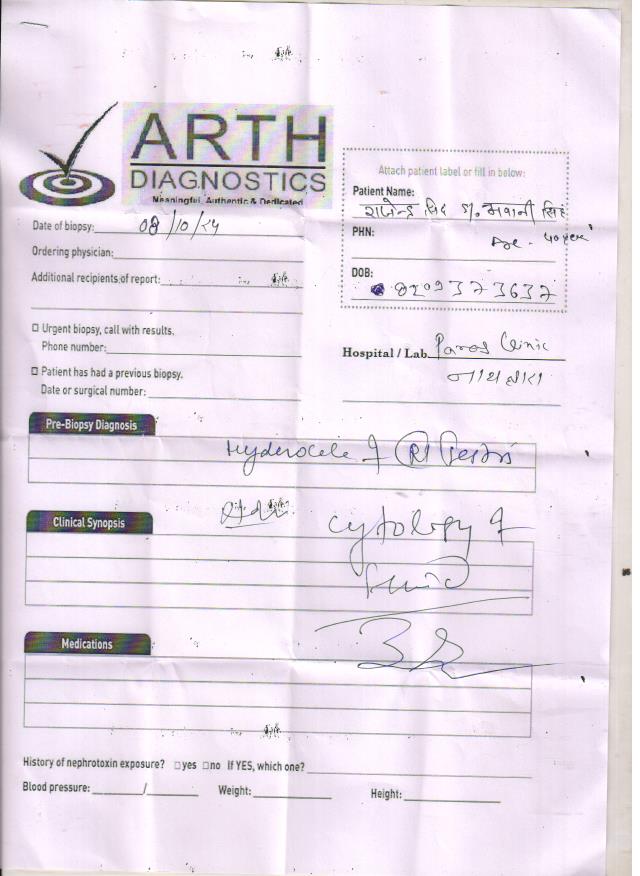 ARTH
DIAGNOSTICS
Meaningful, Authentic & Dedicated
Attach patient label or fill in below:
Patient Name:
राजेन्द्र सिंह S/o भवानी सिंह
Date of biopsy: 08/10/24
PHN:
Age -
Ordering physician:
DOB:
Additional recipients of report:
8209373637
☐ Urgent biopsy, call with results.
Phone number:
Hospital / Lab Paras Clinic
☐ Patient has had a previous biopsy.
Date or surgical number:
Pre-Biopsy Diagnosis
Hyderocele of Rt Testis
Clinical Synopsis
cytology of
fluid
Medications
History of nephrotoxin exposure? ☐ yes ☐ no If YES, which one?
Blood pressure: / Weight: Height: